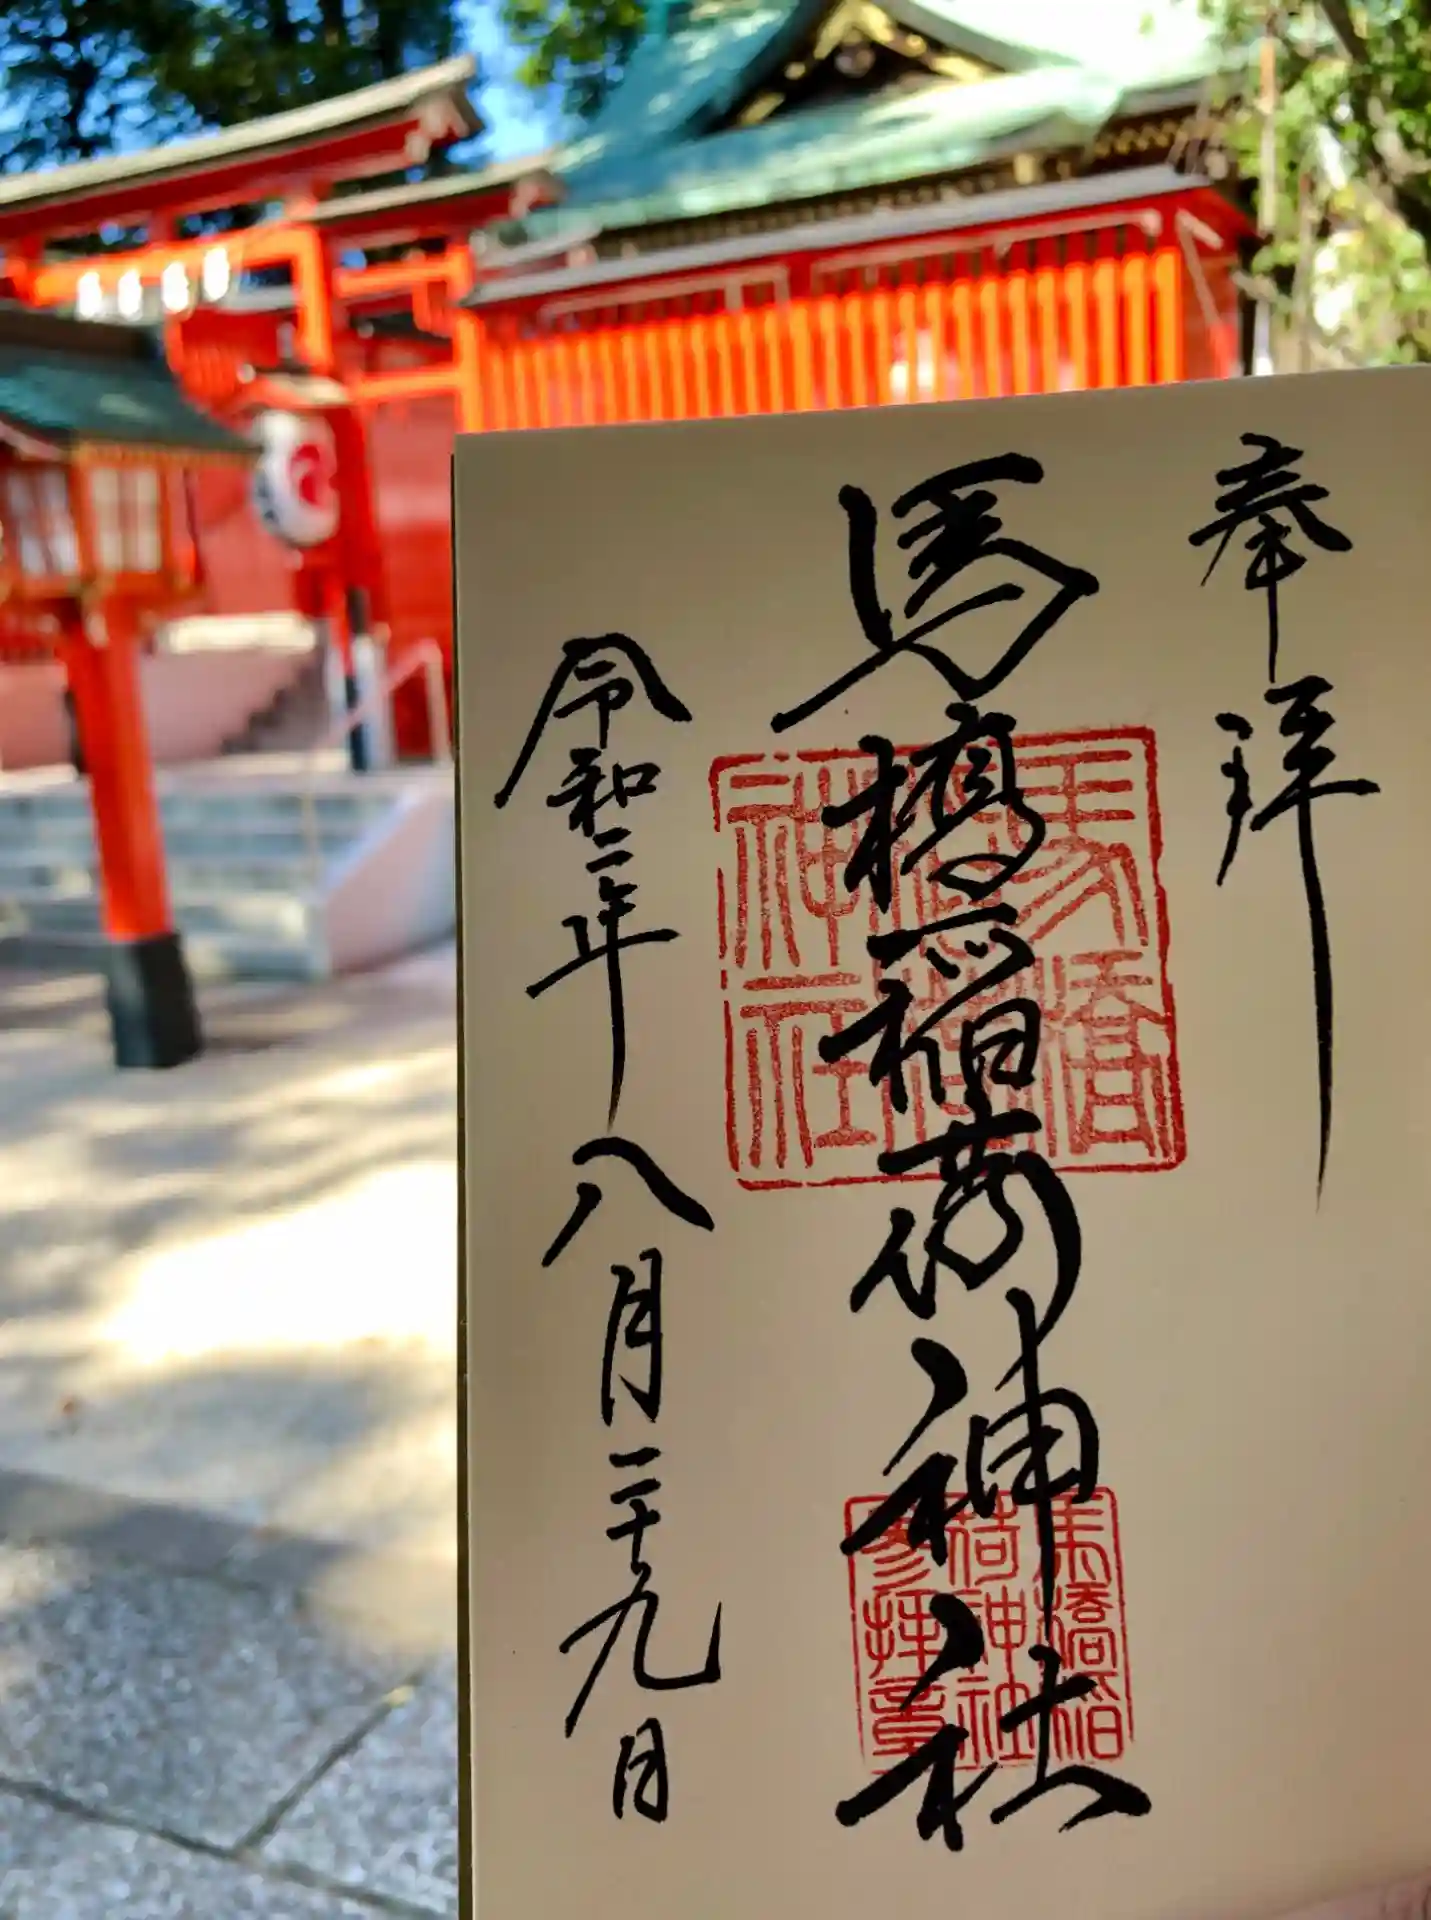 奉拝
馬橋稲荷神社
令和二年八月二十九日
馬橋稲荷神社
馬橋稲荷神社参拝章